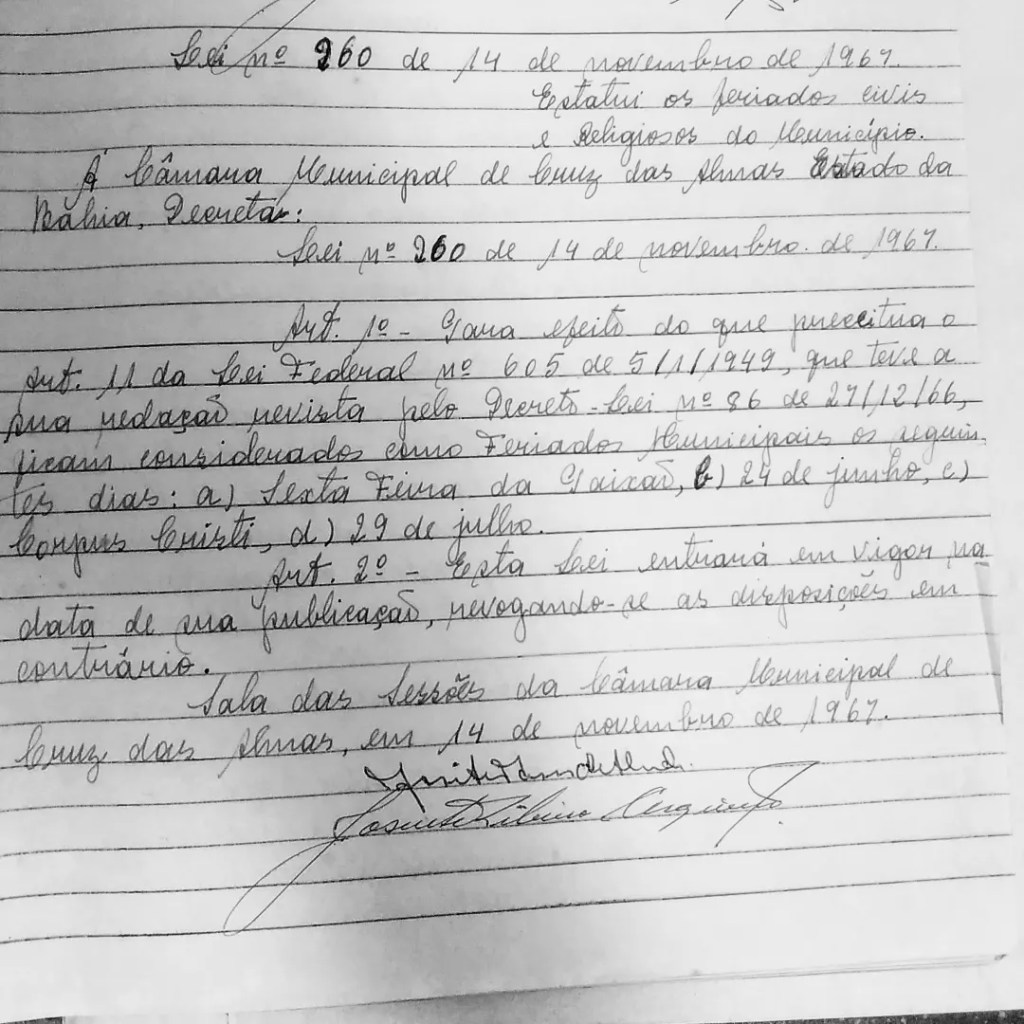 Lei nº 260 de 14 de novembro de 1967.
Estatui os feriados civis
e Religiosos do Município.
A Câmara Municipal de Cruz das Almas Estado da
Bahia, Decreta:
Lei nº 260 de 14 de novembro de 1967.
Art. 1º - Para efeito do que preceitua o
Art. 11 da Lei Federal nº 605 de 5/1/1949, que teve a
sua redação revista pelo Decreto-Lei nº 86 de 27/12/66,
ficam considerados como Feriados Municipais os seguin-
tes dias: a) Sexta Feira da Paixão, b) 24 de junho, c)
Corpus Cristi, d) 29 de julho.
Art. 2º - Esta Lei entrará em vigor na
data de sua publicação, revogando-se as disposições em
contrário.
Sala das Sessões da Câmara Municipal de
Cruz das Almas, em 14 de novembro de 1967.
Ribeiro